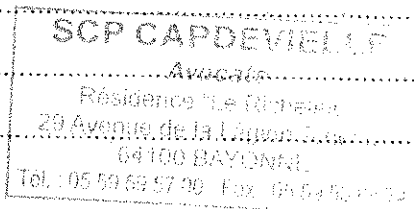 SCP CAPDEVIELLE
Avocats
Résidence "Le Richelieu
29 Avenue de la Légion
64100 BAYONNE
Tél. : 05 59 59 57 00 Fax